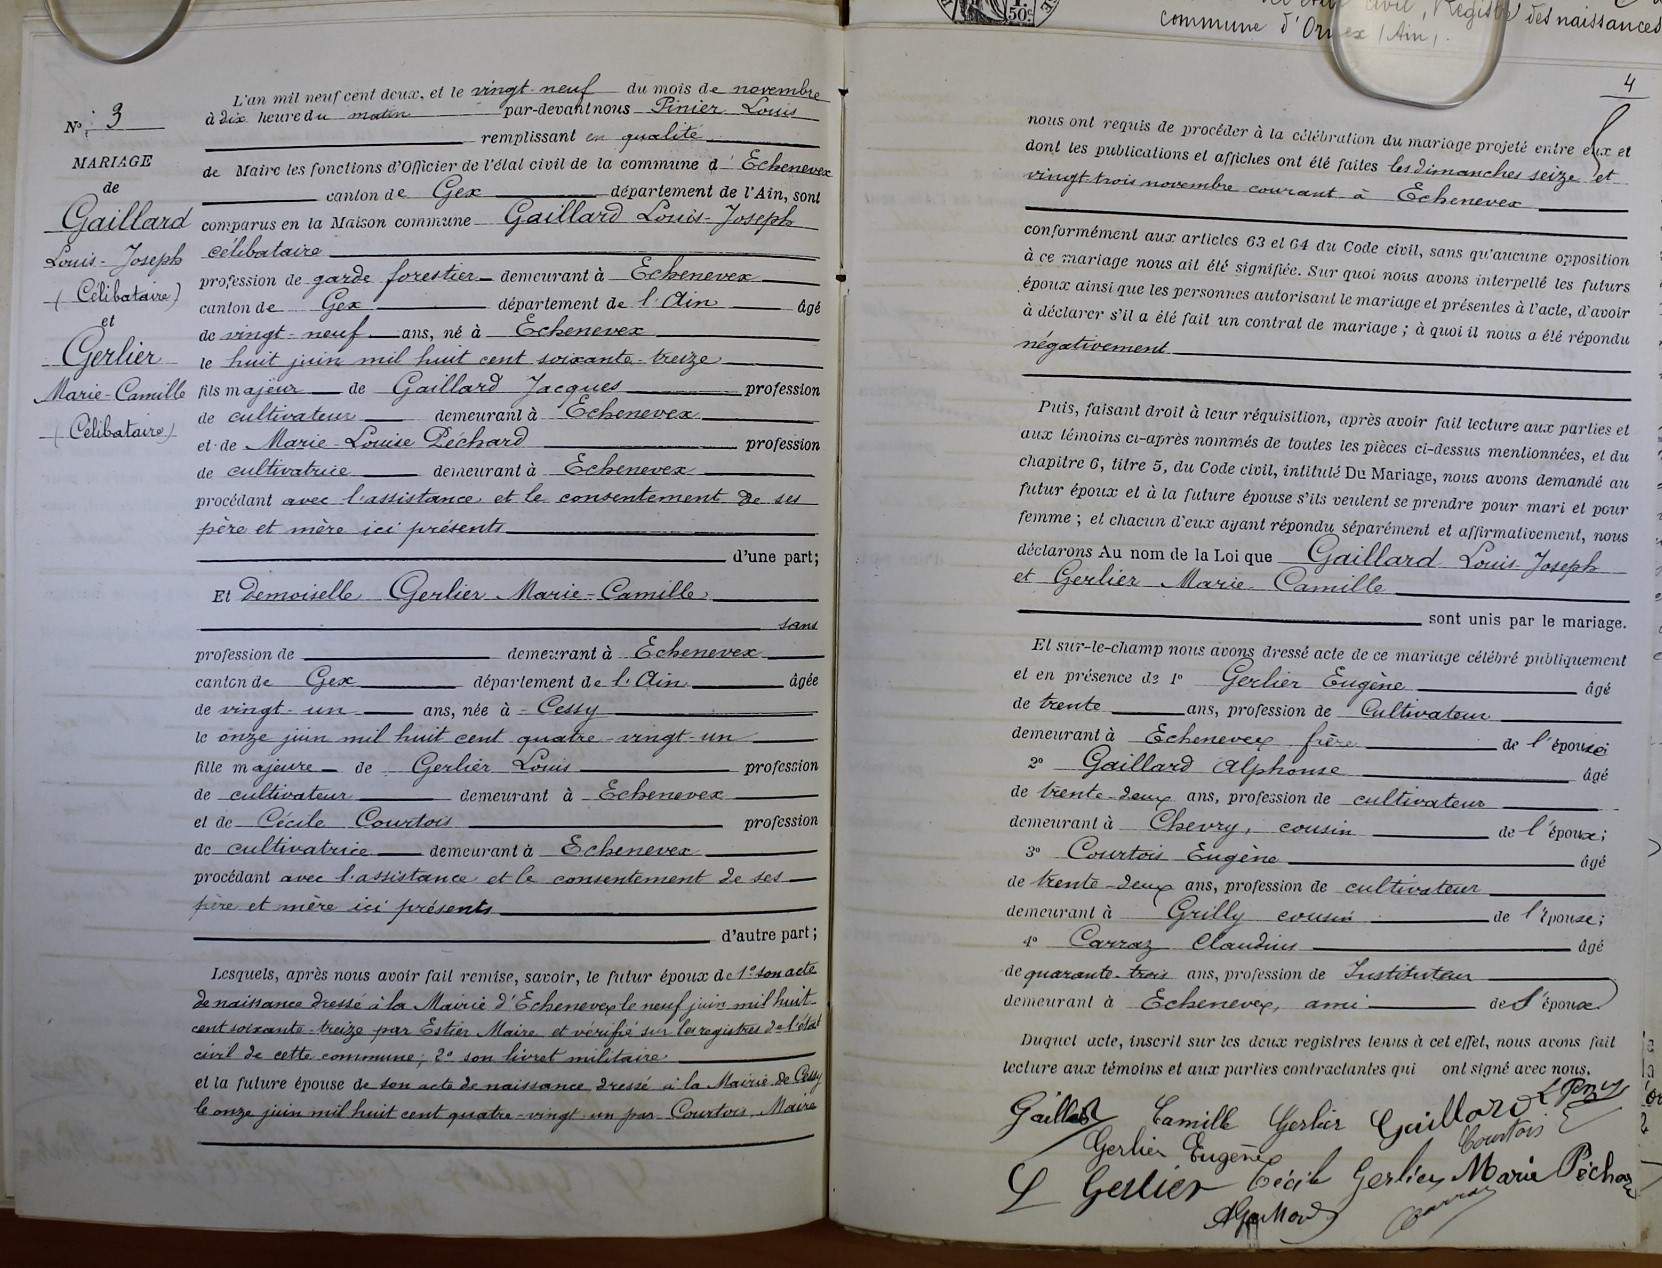 N° 3
MARIAGE
de
Gaillard
Louis-Joseph
(Célibataire)
et
Gerlier
Marie-Camille
(Célibataire)
L'an mil neuf cent deux, et le vingt-neuf du mois de novembre
à dix heure du matin par-devant nous Pinier Louis
remplissant en qualité
de Maire les fonctions d'Officier de l'état civil de la commune d'Echenevex
canton de Gex département de l'Ain, sont
comparus en la Maison commune Gaillard Louis-Joseph
célibataire
profession de garde forestier demeurant à Echenevex
canton de Gex département de l'Ain âgé
de vingt-neuf ans, né à Echenevex
le huit juin mil huit cent soixante-treize
fils majeur de Gaillard Jacques profession
de cultivateur demeurant à Echenevex
et de Marie-Louise Péchard profession
de cultivatrice demeurant à Echenevex
procédant avec l'assistance et le consentement de ses
père et mère ici présents
d'une part;
Et Demoiselle Gerlier Marie-Camille
sans
profession de demeurant à Echenevex
canton de Gex département de l'Ain âgée
de vingt-un ans, née à Cessy
le onze juin mil huit cent quatre-vingt-un
fille majeure de Gerlier Louis profession
de cultivateur demeurant à Echenevex
et de Cécile Courtois profession
de cultivatrice demeurant à Echenevex
procédant avec l'assistance et le consentement de ses
père et mère ici présents
d'autre part;
Lesquels, après nous avoir fait remise, savoir, le futur époux de 1° son acte
de naissance dressé à la Mairie d'Echenevex le neuf juin mil huit
cent soixante-treize par Estier Maire et vérifié sur les registres de l'état
civil de cette commune; 2° son livret militaire
et la future épouse de son acte de naissance dressé à la Mairie de Cessy
le onze juin mil huit cent quatre-vingt-un par Courtois, Maire
50c
civil, Registre des naissances
commune d'Ornex (Ain).
4
nous ont requis de procéder à la célébration du mariage projeté entre eux et
dont les publications et affiches ont été faites les dimanches seize et
vingt-trois novembre courant à Echenevex
conformément aux articles 63 et 64 du Code civil, sans qu'aucune opposition
à ce mariage nous ait été signifiée. Sur quoi nous avons interpellé les futurs
époux ainsi que les personnes autorisant le mariage et présentes à l'acte, d'avoir
à déclarer s'il a été fait un contrat de mariage; à quoi il nous a été répondu
négativement
Puis, faisant droit à leur réquisition, après avoir fait lecture aux parties et
aux témoins ci-après nommés de toutes les pièces ci-dessus mentionnées, et du
chapitre 6, titre 5, du Code civil, intitulé Du Mariage, nous avons demandé au
futur époux et à la future épouse s'ils veulent se prendre pour mari et pour
femme; et chacun d'eux ayant répondu séparément et affirmativement, nous
déclarons Au nom de la Loi que Gaillard Louis-Joseph
et Gerlier Marie-Camille
sont unis par le mariage.
Et sur-le-champ nous avons dressé acte de ce mariage célébré publiquement
et en présence de 1° Gerlier Eugène âgé
de trente ans, profession de Cultivateur
demeurant à Echenevex frère de l'épouse
2° Gaillard Alphonse âgé
de trente-deux ans, profession de cultivateur
demeurant à Chevry, cousin de l'époux;
3° Courtois Eugène âgé
de trente-deux ans, profession de cultivateur
demeurant à Grilly cousin de l'épouse;
4° Carraz Claudius âgé
de quarante-trois ans, profession de Instituteur
demeurant à Echenevex, ami de l'époux
Duquel acte, inscrit sur les deux registres tenus à cet effet, nous avons fait
lecture aux témoins et aux parties contractantes qui ont signé avec nous.
Gaillard Camille Gerlier Gaillard
Gerlier Eugène Courtois
L Gerlier Cécile Gerlier Marie Péchard
AGaillard Carraz